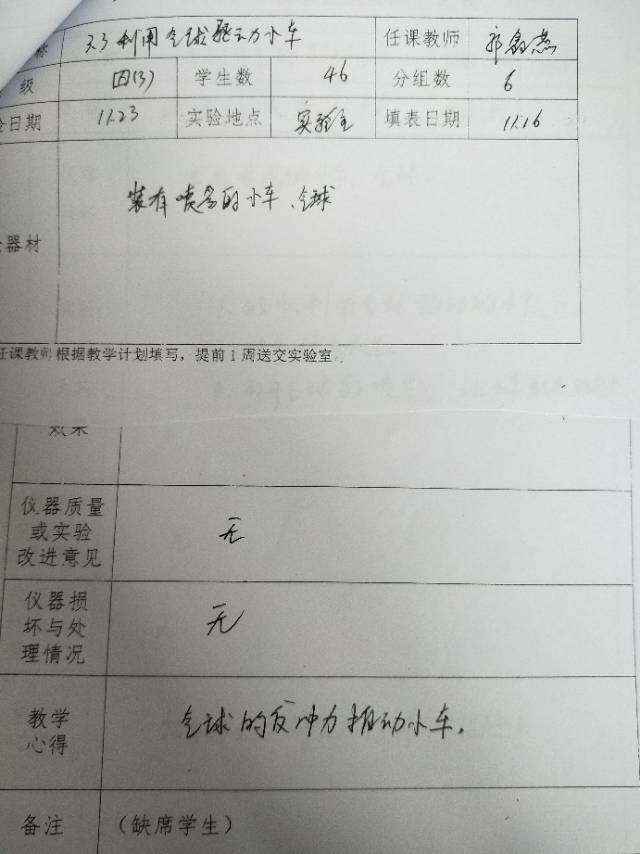 称 3.3 利用气球驱动小车 任课教师
级 四(3) 学生数 46 分组数 6
日期 11.23 实验地点 实验室 填表日期 11.16
装有喷多的小车、气球
器材
任课教师根据教学计划填写，提前1周送交实验室。
效果
仪器质量
或实验
改进意见
无
仪器损
坏与处
理情况
无
教学
心得
气球的反冲力推动小车。
备注 （缺席学生）